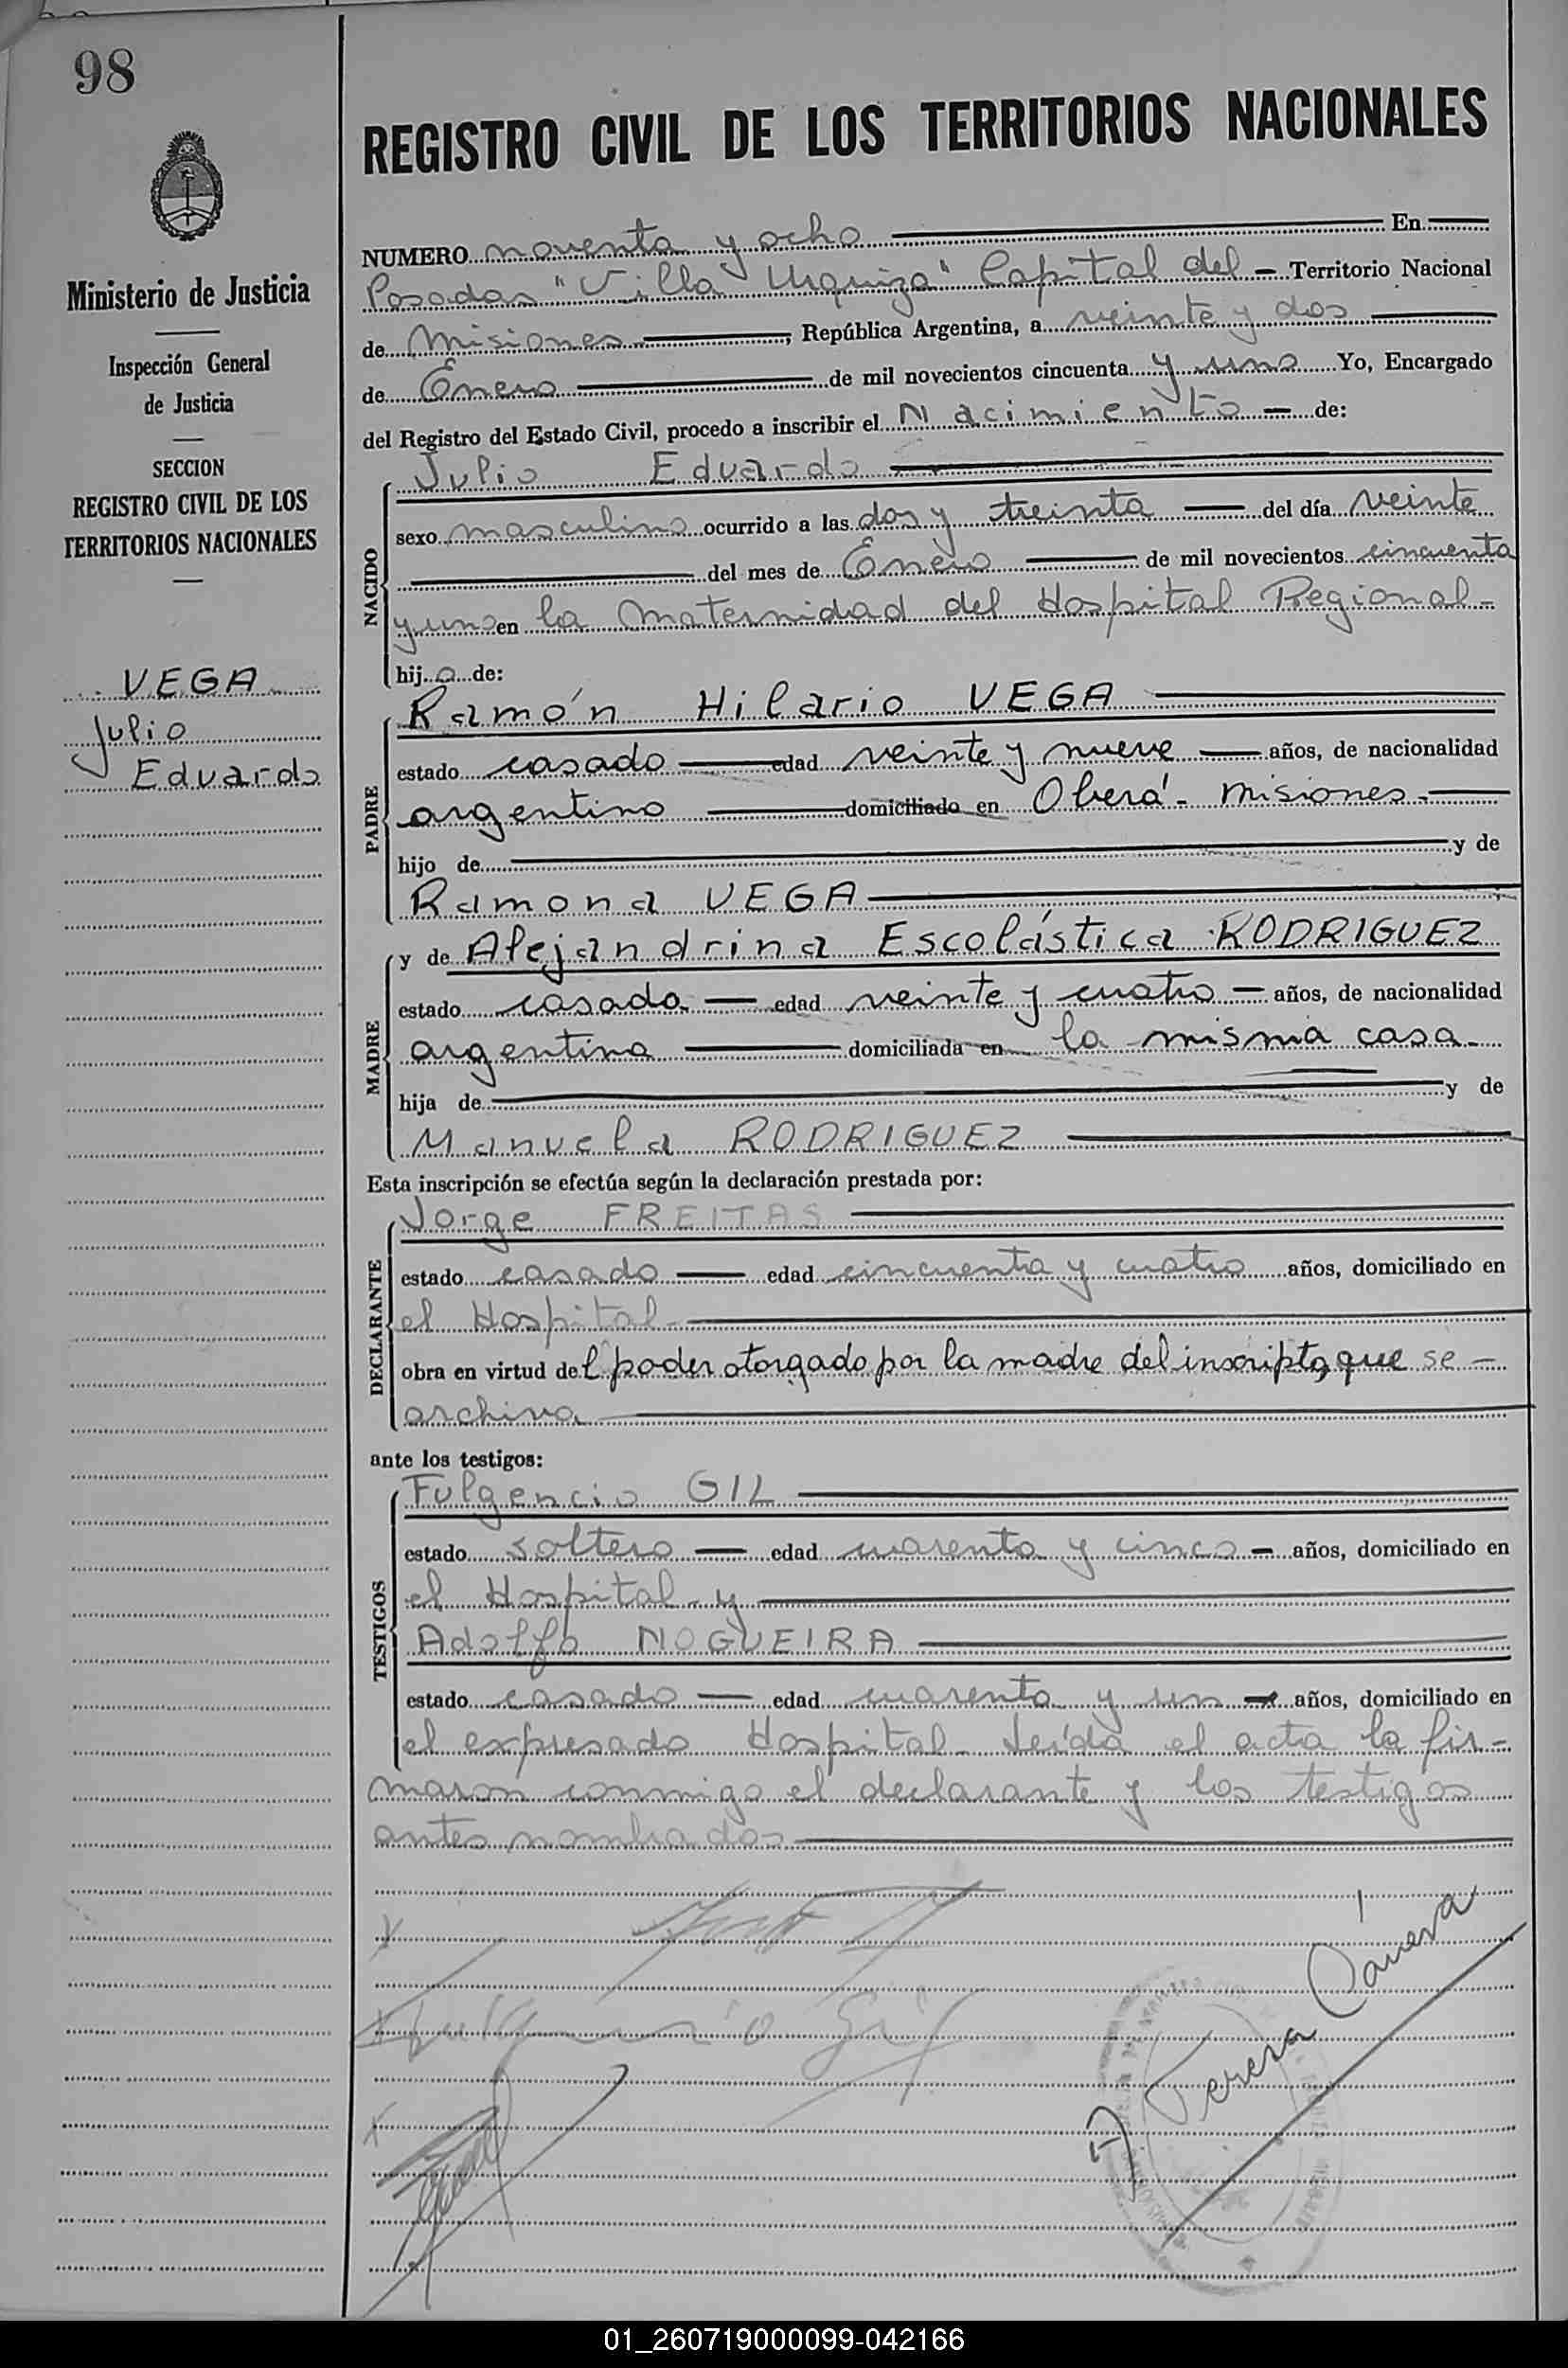 98
Ministerio de Justicia
Inspección General
de Justicia
SECCION
REGISTRO CIVIL DE LOS
TERRITORIOS NACIONALES
VEGA
Julio
Eduardo
REGISTRO CIVIL DE LOS TERRITORIOS NACIONALES
NUMERO noventa y ocho En
Posadas "Villa Urquiza" Capital del Territorio Nacional
de Misiones, República Argentina, a veinte y dos
de Enero de mil novecientos cincuenta y uno Yo, Encargado
del Registro del Estado Civil, procedo a inscribir el Nacimiento de:
NACIDO
Julio Eduardo
sexo masculino ocurrido a las dos y treinta del día veinte
del mes de Enero de mil novecientos cincuenta
y uno en la Maternidad del Hospital Regional-
hijo de:
PADRE
Ramón Hilario VEGA
estado casado edad veinte y nueve años, de nacionalidad
argentino domiciliado en Oberá - Misiones.
hijo de y de
Ramona VEGA
MADRE
y de Alejandrina Escolástica RODRIGUEZ
estado casada edad veinte y cuatro años, de nacionalidad
argentina domiciliada en la misma casa.
hija de y de
Manuela RODRIGUEZ
Esta inscripción se efectúa según la declaración prestada por:
DECLARANTE
Jorge FREITAS
estado casado edad cincuenta y cuatro años, domiciliado en
el Hospital.
obra en virtud del poder otorgado por la madre del inscripto, que se
archiva
ante los testigos:
TESTIGOS
Fulgencio GIL
estado soltero edad cuarenta y cinco años, domiciliado en
el Hospital y
Adolfo NOGUEIRA
estado casado edad cuarenta y un años, domiciliado en
el expresado Hospital. Leída el acta la fir-
maron conmigo el declarante y los testigos
antes nombrados
Fulgencio Gil
01_260719000099-042166